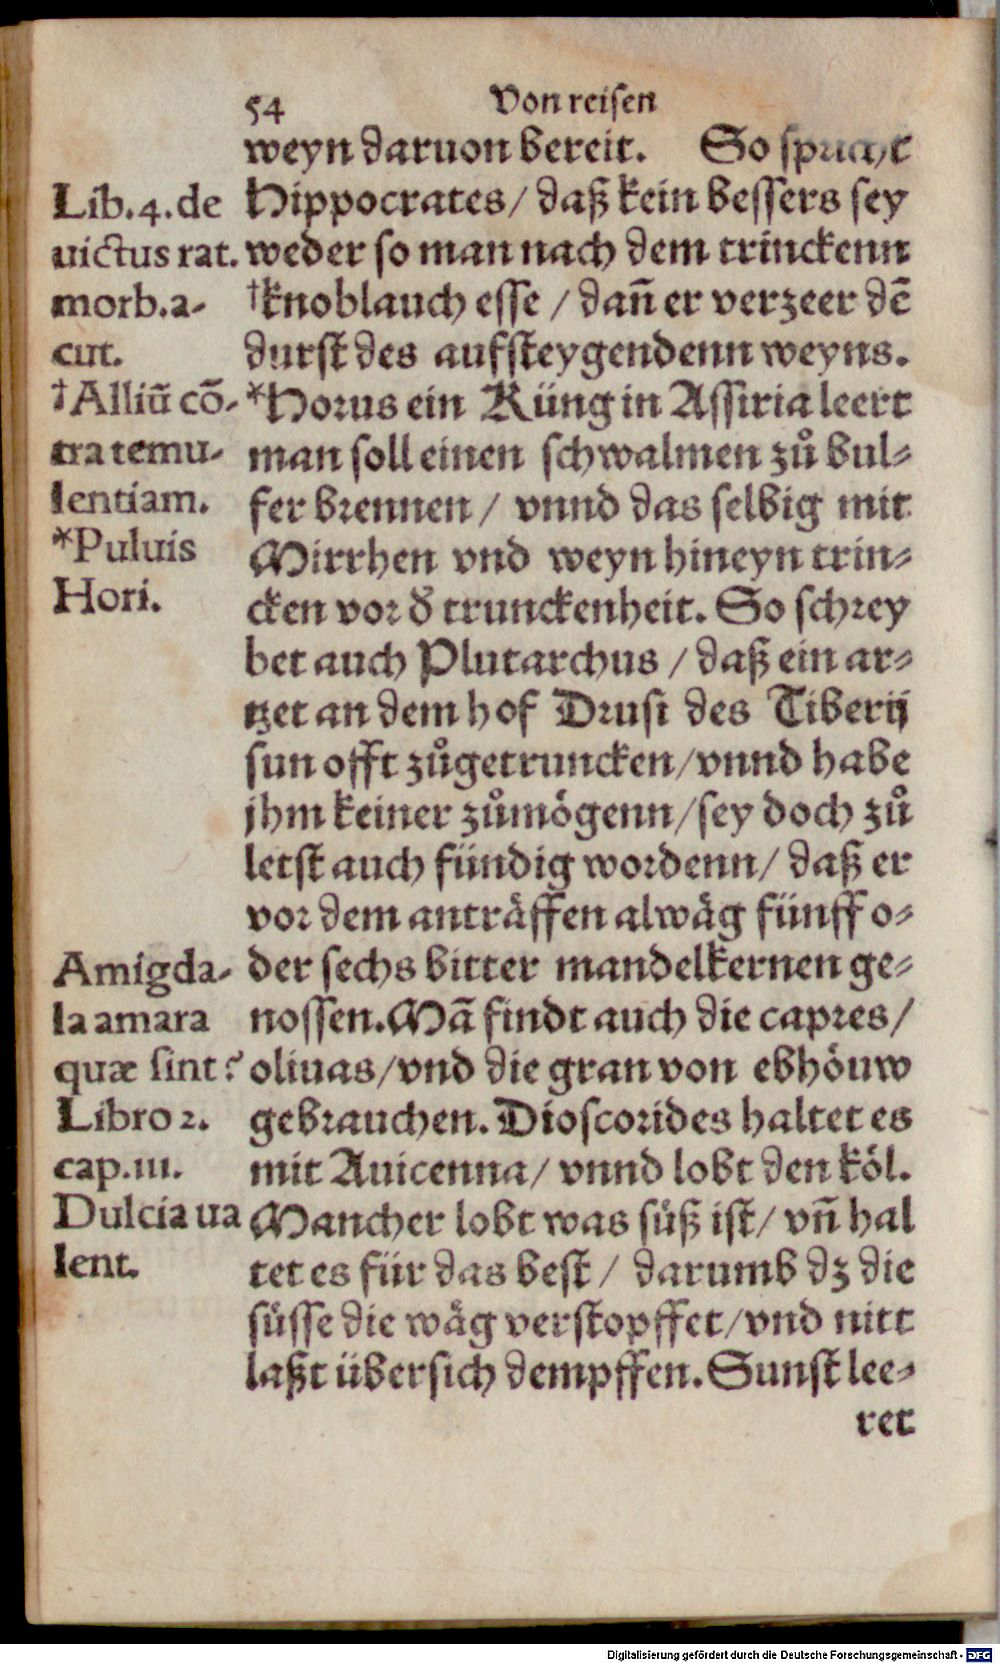 54 Von reisen
weyn daruon bereit. So spricht
Hippocrates/ daß kein bessers sey
weder so man nach dem trinckenn
†knoblauch esse / dañ er verzeer dē
durst des aufsteygendenn weyns.
*Horus ein Küng in Assiria leert
man soll einen schwalmen zů bul-
fer brennen / vnnd das selbig mit
Mirrhen vnd weyn hineyn trin-
cken vor d̕ trunckenheit. So schrey
bet auch Plutarchus / daß ein ar-
tzet an dem hof Drusi des Tiberij
sun offt zůgetruncken/vnnd habe
jhm keiner zůmögenn/sey doch zů
letst auch fündig wordenn/ daß er
vor dem anträffen alwäg fünff o-
der sechs bitter mandelkernen ge-
nossen.Mā findt auch die capres/
oliuas/vnd die gran von ebhöuw
gebrauchen. Dioscorides haltet es
mit Auicenna/ vnnd lobt den köl.
Mancher lobt was süß ist/ vñ hal
tet es für das best / darumb dz die
süsse die wäg verstopffet/vnd nitt
laßt übersich dempffen. Sunst lee-
ret
Lib.4.de
uictus rat.
morb.a-
cut.
†Alliū cō-
tra temu-
lentiam.
*Puluis
Hori.
Amigda-
la amara
quæ sint?
Libro 2.
cap.111.
Dulcia ua
lent.
Digitalisierung gefördert durch die Deutsche Forschungsgemeinschaft - DFG